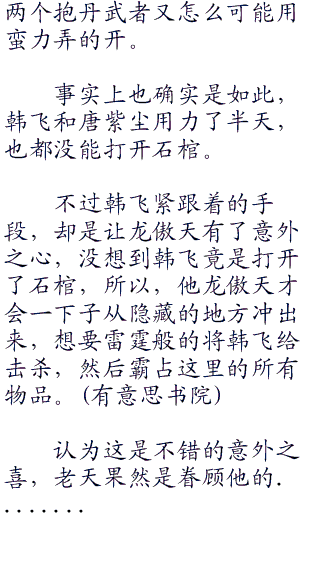 两个抱丹武者又怎么可能用
蛮力弄的开。
事实上也确实是如此，
韩飞和唐紫尘用力了半天，
也都没能打开石棺。
不过韩飞紧跟着的手
段，却是让龙傲天有了意外
之心，没想到韩飞竟是打开
了石棺，所以，他龙傲天才
会一下子从隐藏的地方冲出
来，想要雷霆般的将韩飞给
击杀，然后霸占这里的所有
物品。(有意思书院)
认为这是不错的意外之
喜，老天果然是眷顾他的.
.......